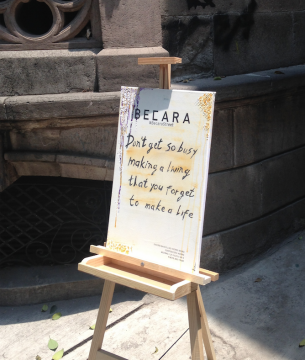 BECARA
Don't get so busy
making a living
that you forget
to make a life